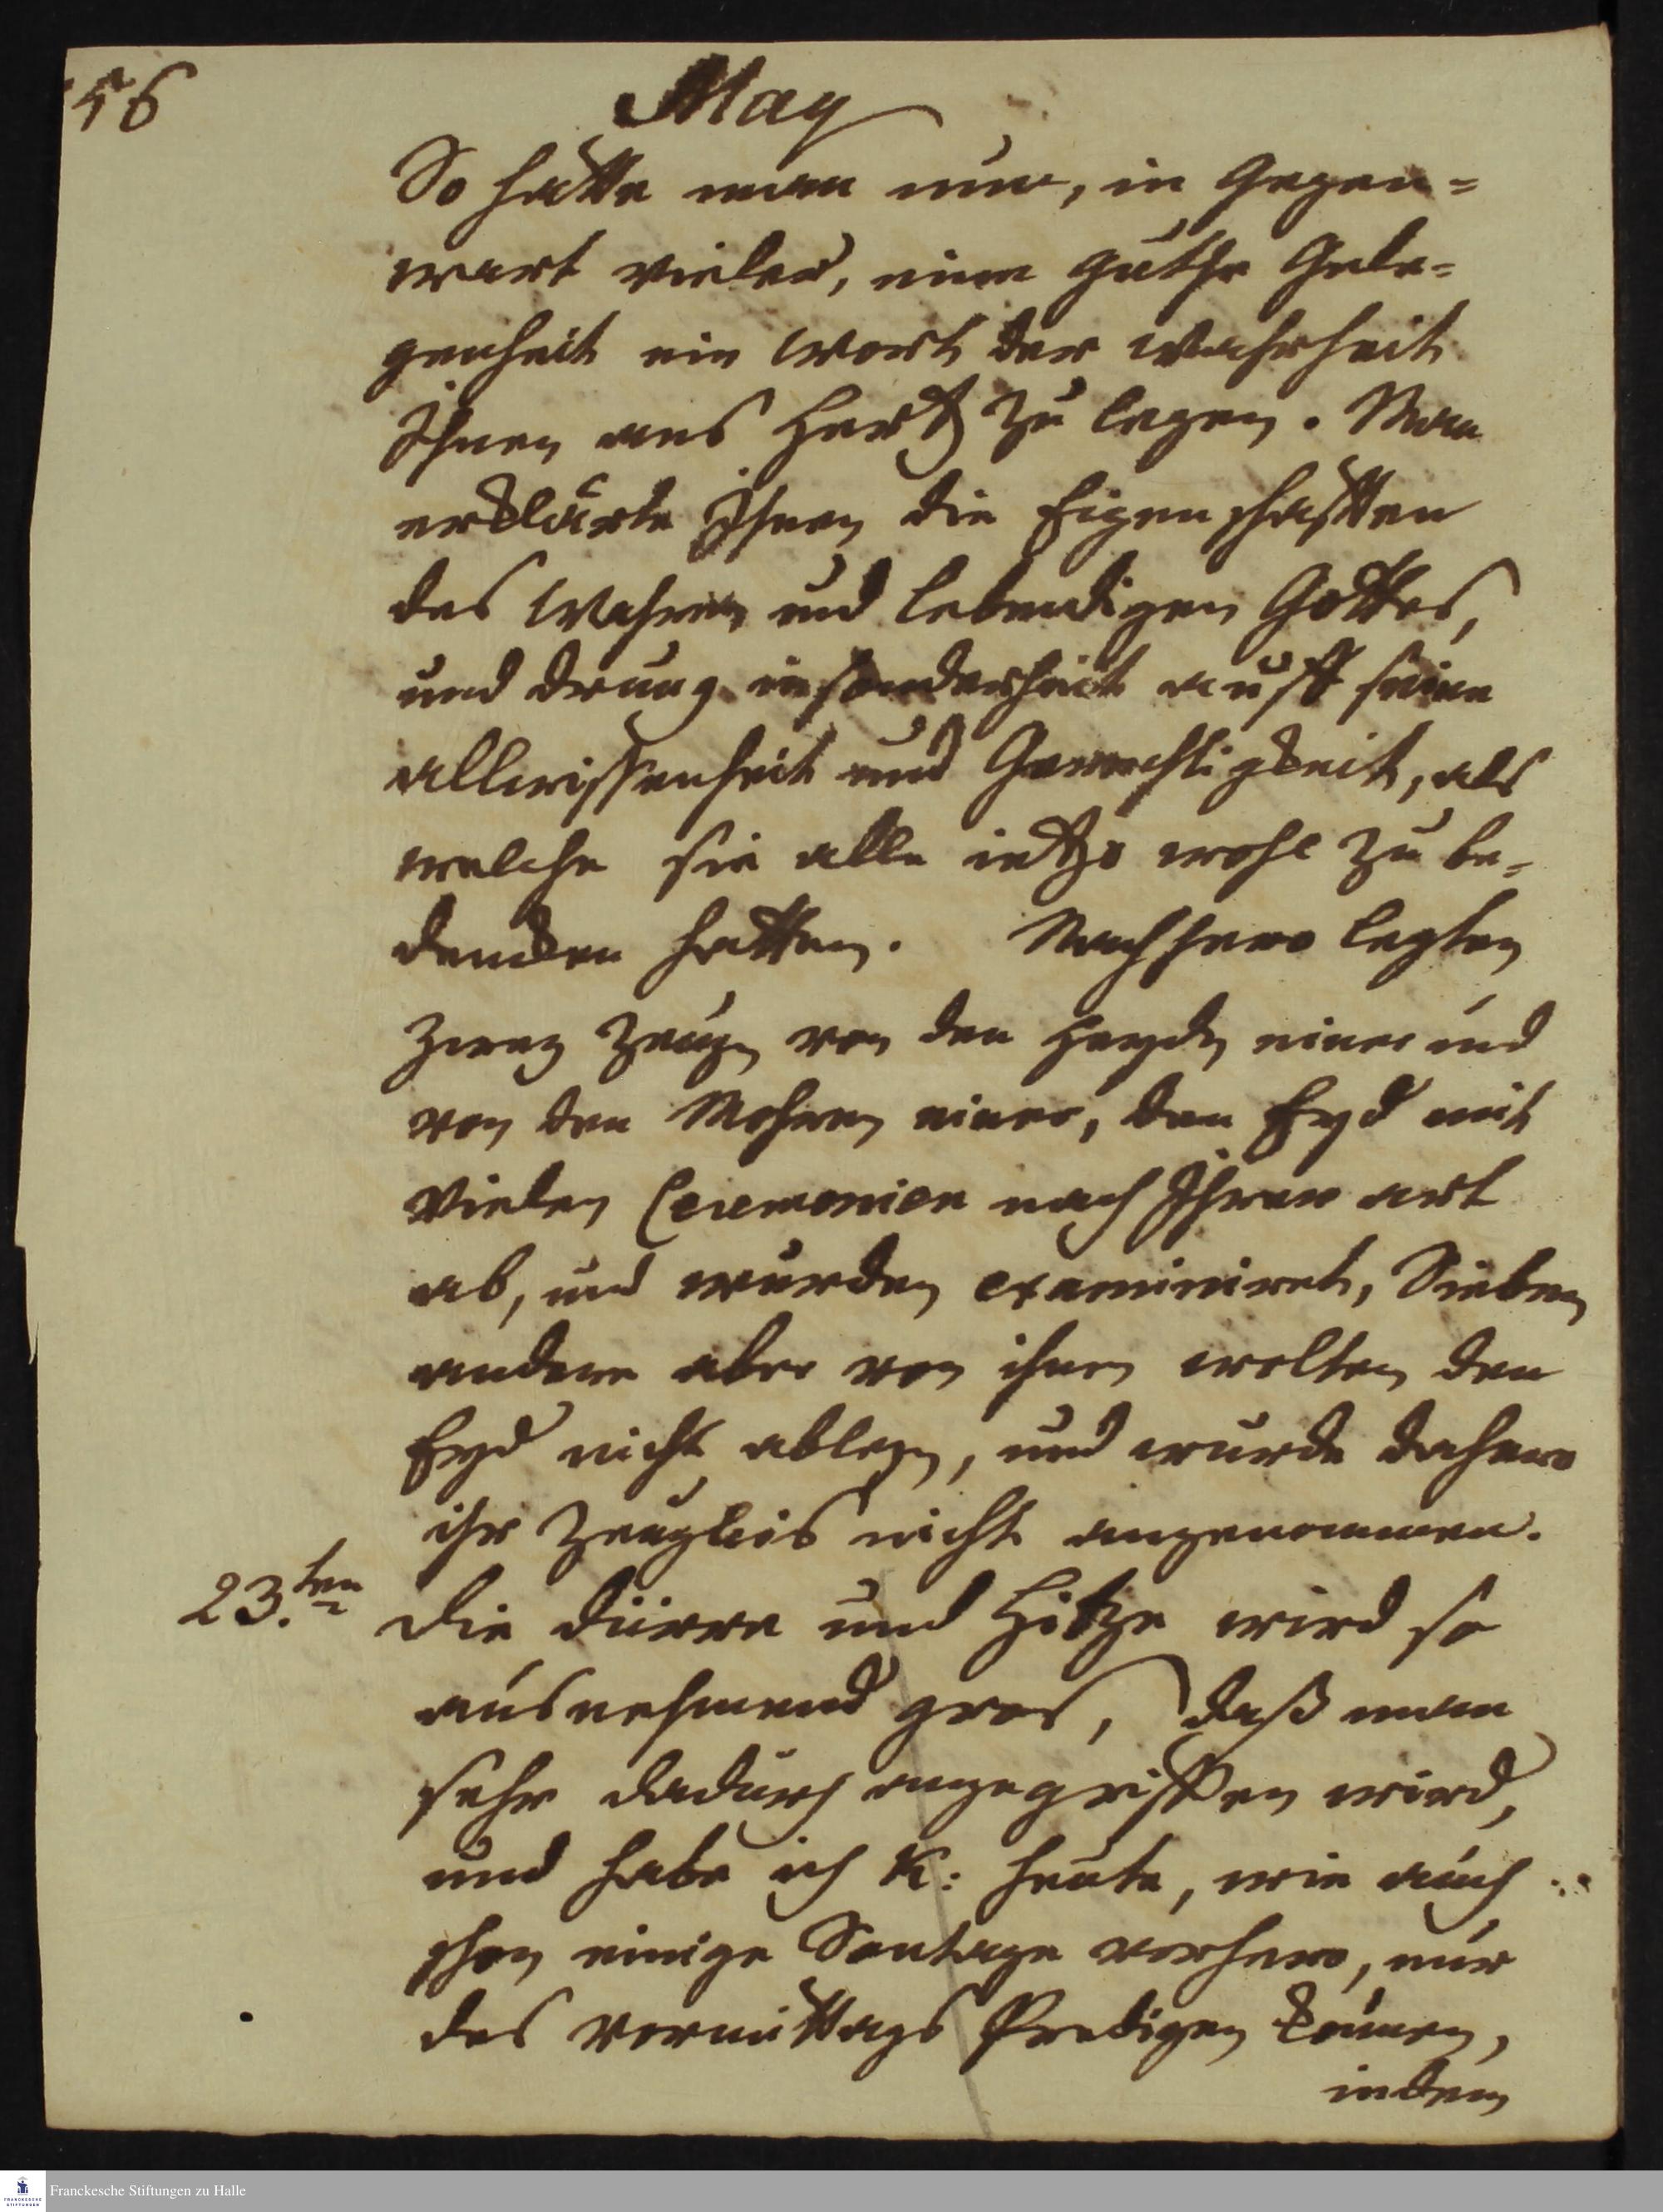 156
May
So hatte man nun, in Gegen=
wart vieler, eine guthe Gele=
genheit ein Wort der Wahrheit
Ihnen ans Hertz zu legen. Man
erklärte Ihnen die Eigenschafften
des Wahren und lebendigen Gottes,
und drung insonderheit auff seine
allwissenheit und Gerechtigkeit, als
welche sie alle ietzo wohl zu be=
dencken hatten. Nachhero legten
zwey Zeugen von den Heyden einer und
von den Mohren einer, den Eyd mit
Vielen Ceremonien nach Ihrer art
ab, und wurden examiniret, Sieben
andere aber von ihnen wolten den
Eyd nicht ablegen, und wurde dahero
ihr Zeugnis nicht angenommen.
23.ten Die dürre und Hitze wird so
ausnehmend gros, daß man
sehr dadurch angegriffen wird,
und habe ich K: heute, wie auch
schon einige Sontage vorhero, nur
des vormittags Predigen können,
indem
Franckesche Stiftungen zu Halle